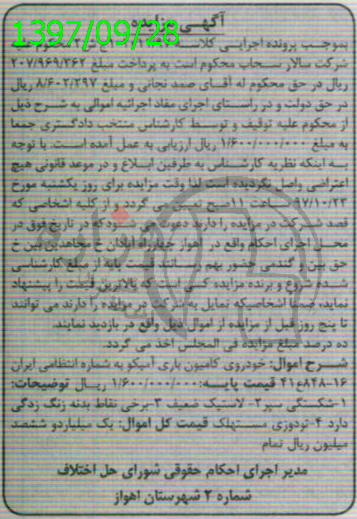 آگهی مزایده
1397/09/28
بموجب پرونده اجرایی کلاسه محکوم علیه
شرکت سالار سحاب محکوم است به پرداخت مبلغ ۲۰۷/۹۶۹/۳۶۲
ریال در حق محکوم له آقای صمد نجاتی و مبلغ ۸/۶۰۲/۲۹۷ ریال
در حق دولت و در راستای اجرای مفاد اجرائیه اموالی به شرح ذیل
از محکوم علیه توقیف و توسط کارشناس منتخب دادگستری جمعا
به مبلغ ۱/۶۰۰/۰۰۰/۰۰۰ ریال ارزیابی به عمل آمده است. با توجه
به اینکه نظریه کارشناس به طرفین ابلاغ و در موعد قانونی هیچ
اعتراضی واصل نگردیده است لذا وقت مزایده برای روز یکشنبه مورخ
۹۷/۱۰/۲۳ ساعت ۱۱ صبح تعیین می گردد و از کلیه اشخاصی که
قصد شرکت در مزایده را دارند دعوت می شود که در تاریخ فوق در
محل اجرای احکام واقع در اهواز چهارراه آبادان خ مجاهدین بین خ
حق بین و گندمی حضور بهم رسانند. قیمت پایه از مبلغ کارشناسی
شده شروع و برنده مزایده کسی است که بالاترین قیمت را پیشنهاد
نماید. ضمنا اشخاصیکه تمایل به شرکت در مزایده را دارند می توانند
تا پنج روز قبل از مزایده از اموال ذیل واقع در بازدید نمایند.
ده درصد مبلغ مزایده فی المجلس اخذ می گردد.
شرح اموال: خودروی کامیون باری آمیکو به شماره انتظامی ایران
۱۶-۸۴۸ع۴۱ قیمت پایه: ۱/۶۰۰/۰۰۰/۰۰۰ ریال توضیحات:
۱-شکستگی سپر ۲-لاستیک ضعیف ۳-برخی نقاط بدنه زنگ زدگی
دارد ۴-تودوزی مستهلک قیمت کل اموال: یک میلیارد و ششصد
میلیون ریال تمام
مدیر اجرای احکام حقوقی شورای حل اختلاف
شماره ۲ شهرستان اهواز